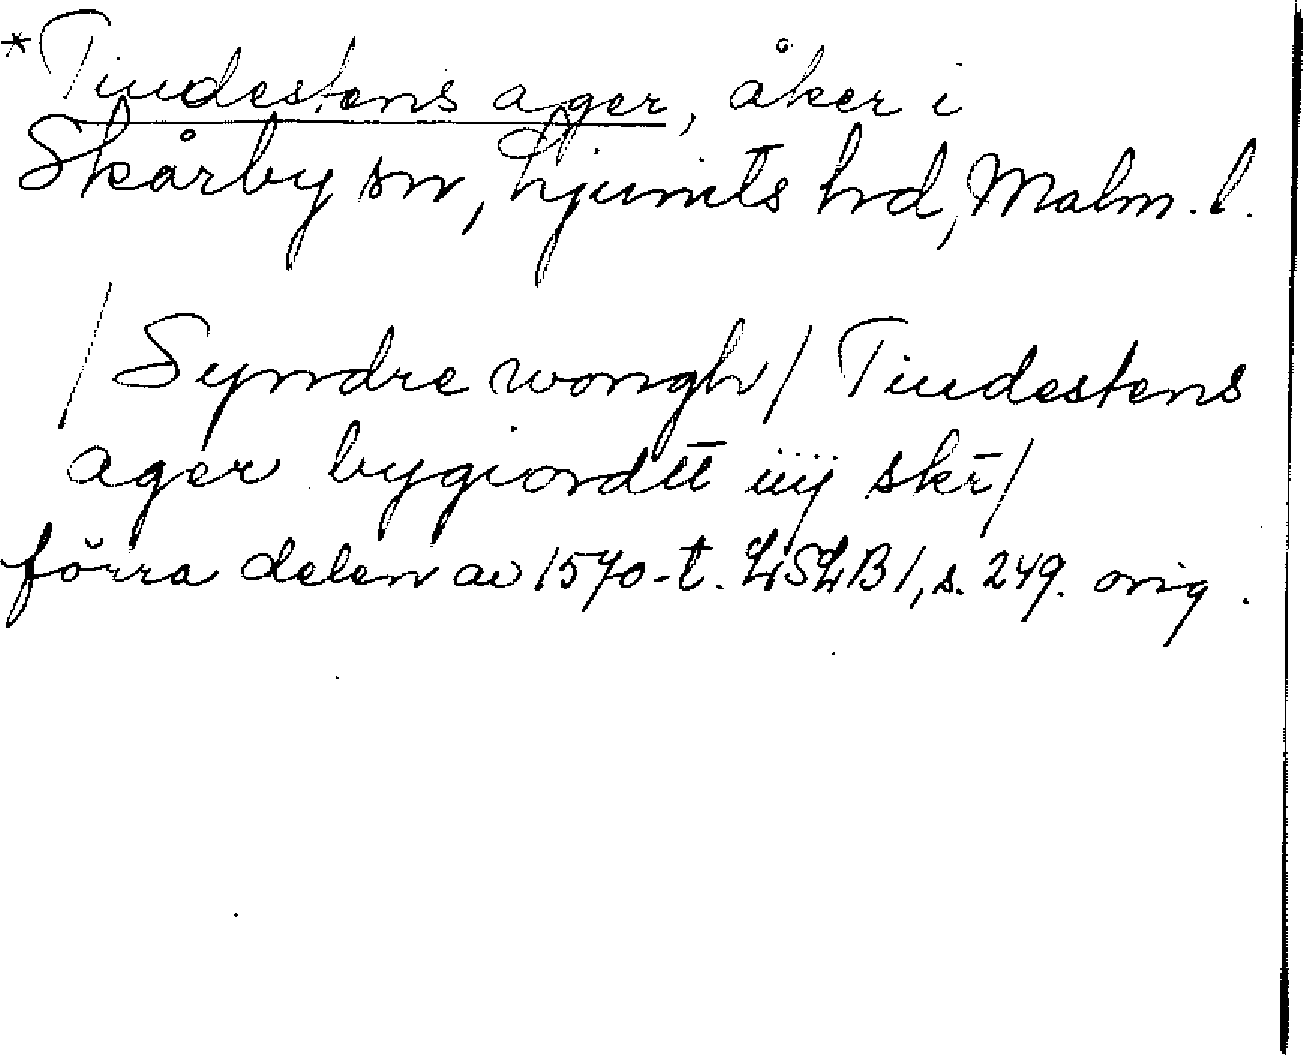 *Tindestens ager, åker i
Skårby sn, Ljunits hrd, Malm. l.
/Syndre wongh/ Tindestens
ager bygiordt̅t̅ iiij skr̅/
förra delen av 1570-t. LSLB 1, s. 249. orig.